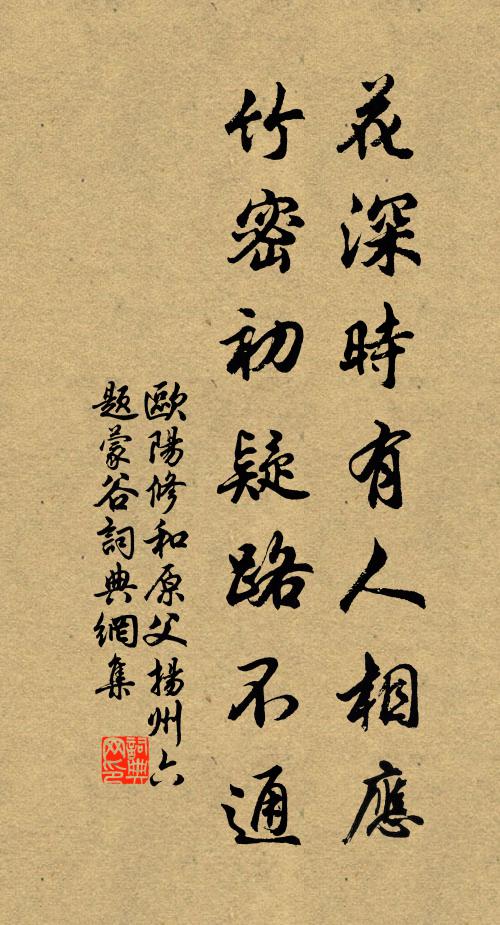 花深時有人相應
竹密初疑路不通
歐陽修和原父揚州六
題蒙谷詞典網集
詞典
网印